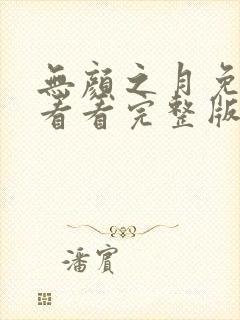 無顏之月免
看看完整版
潘賓